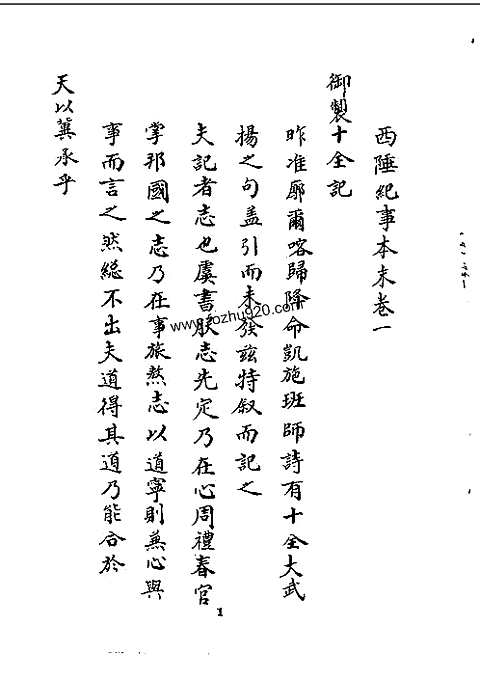 西陲紀事本末卷一
御製十全記
昨准廓爾喀歸降命凱旋班師詩有十全大武
揚之句盖引而未發兹特叙而記之
夫記者志也虞書朕志先定乃在心周禮春官
掌邦國之志乃在事旅獒志以道寧則兼心與
事而言之然總不出夫道得其道乃能合於
天以冀承乎
1